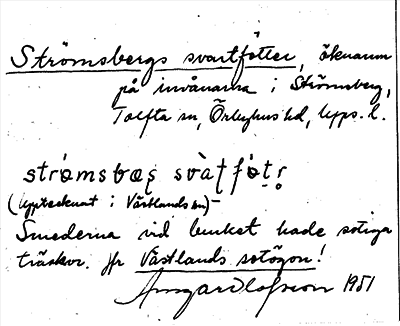 Strömsbergs svartfötter, öknamn
på invånarna i Strömsberg,
Tolfta sn, Örbyhus hd, Upps. l.
strǿmsbæs̨ svàṭfǿtr̥
(upptecknat i Västlands sn) –
Smederna vid bruket hade sotiga
träskor. Jfr Västlands sotögon!
1951